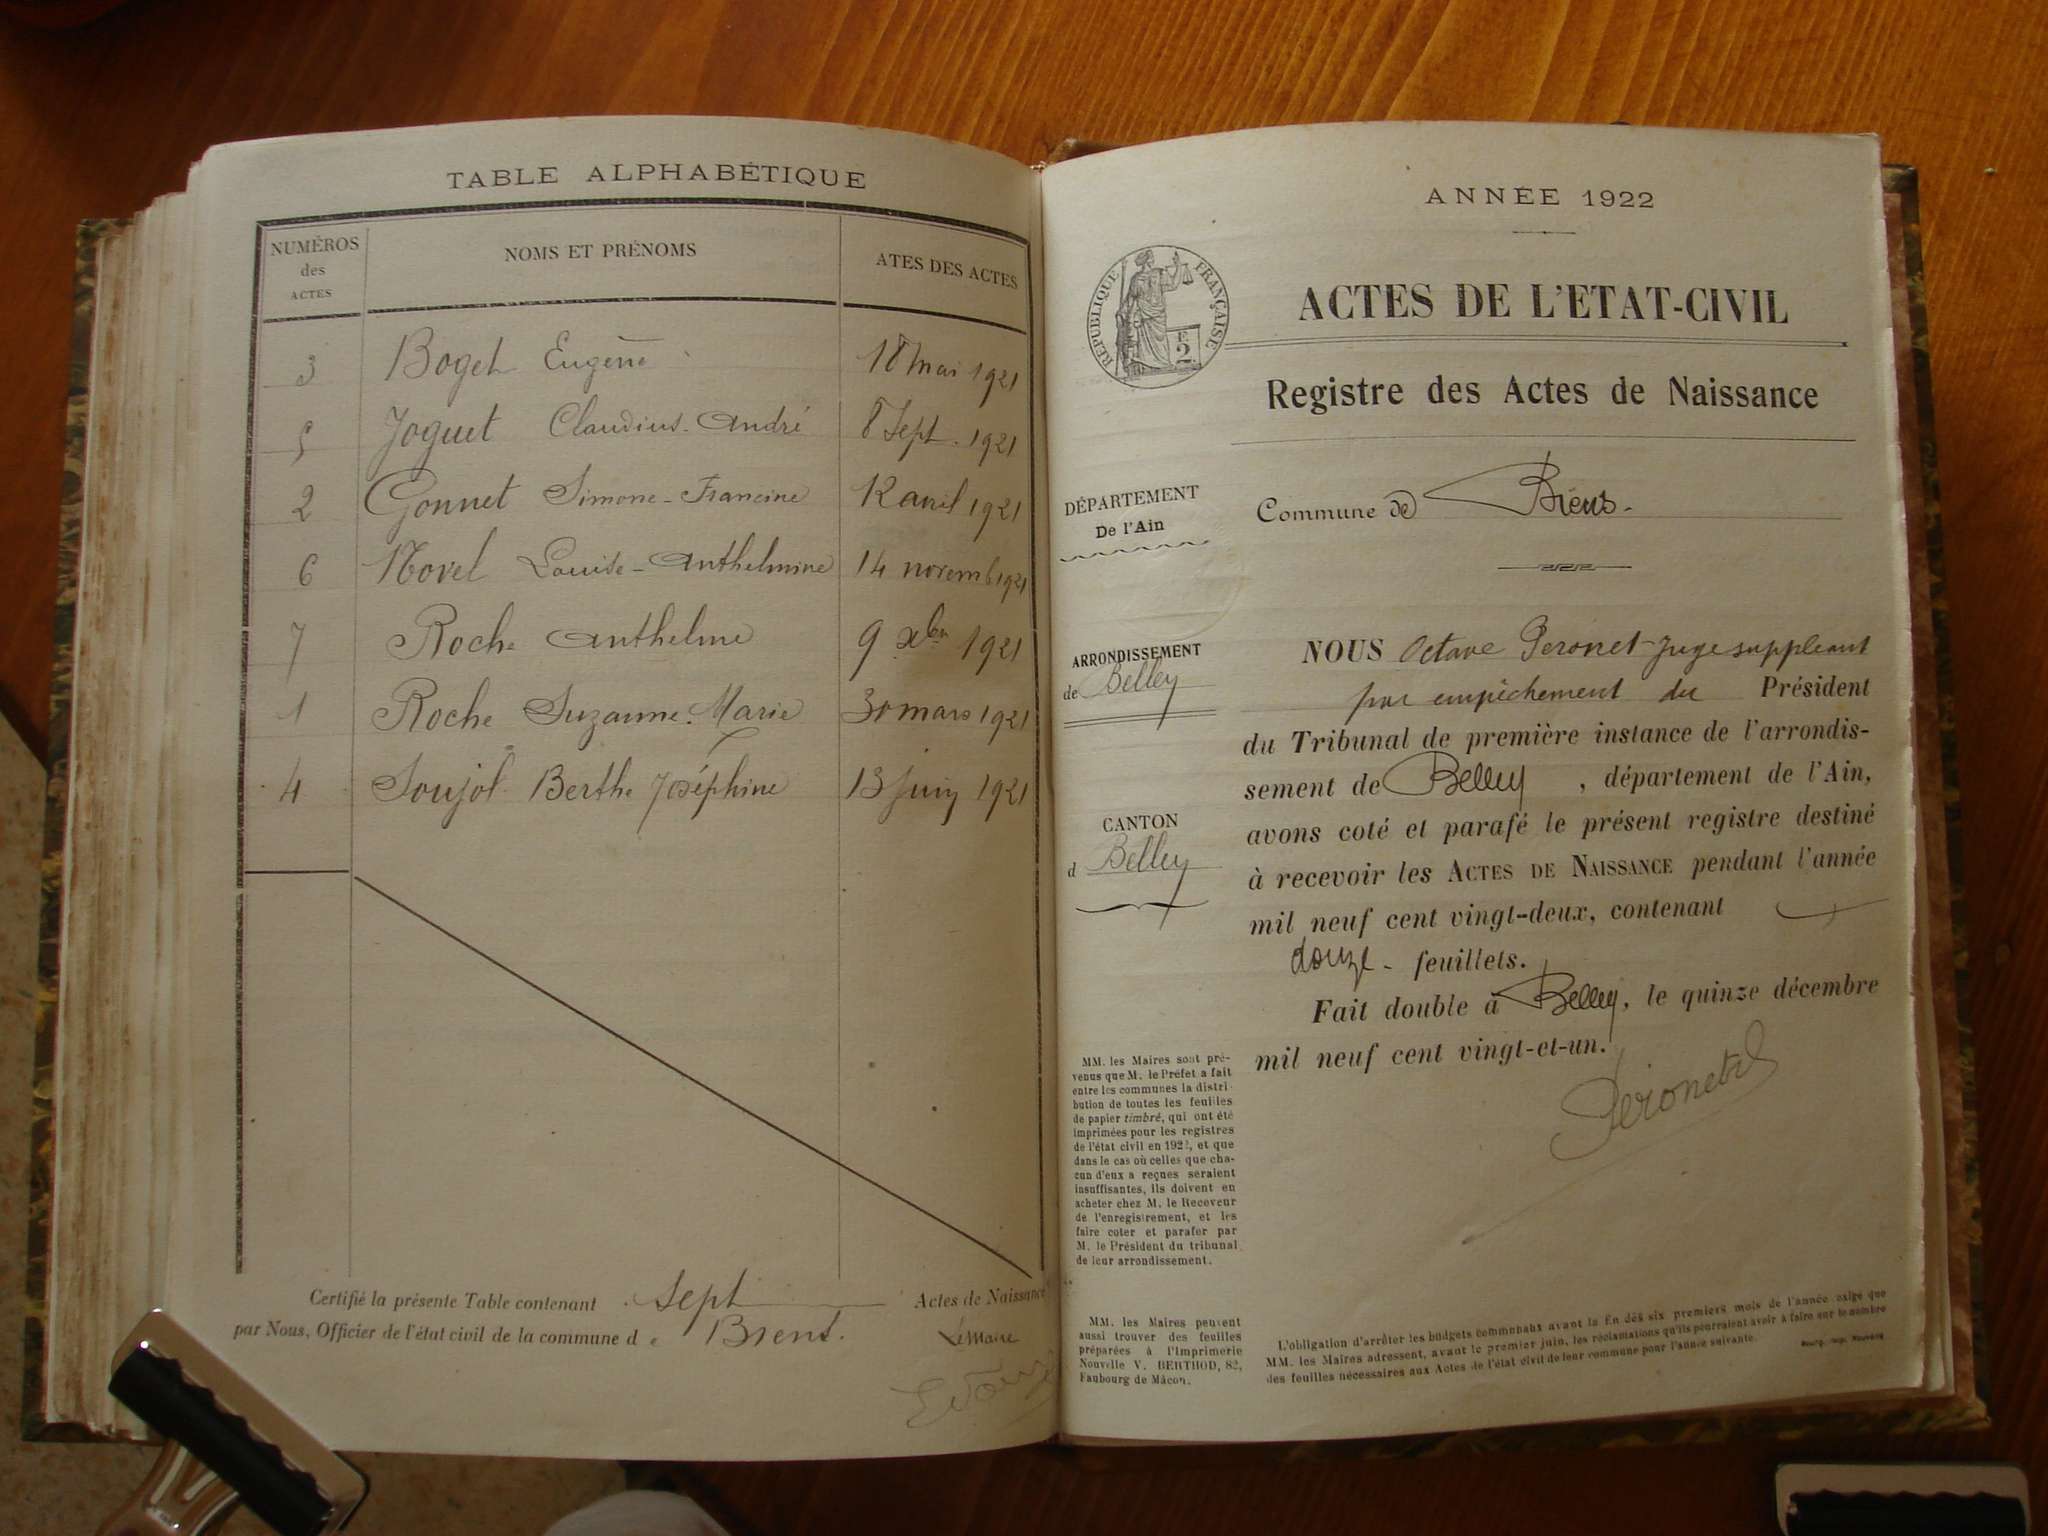 TABLE ALPHABÉTIQUE
NUMÉROS des ACTES NOMS ET PRÉNOMS ATES DES ACTES
3 Boget Eugène 18 mai 1921
5 Joguet Claudius-André 8 Sept. 1921
2 Gonnet Simone-Francine 12 avril 1921
6 Novel Louise-Anthelmine 14 novemb 1921
7 Roche Anthelme 9 xbre 1921
1 Roche Suzanne-Marie 30 mars 1921
4 Soujol Berthe Joséphine 13 juin 1921
Certifié la présente Table contenant Sept Actes de Naissance
par Nous, Officier de l'état civil de la commune d e Brens.
Le Maire
ANNÉE 1922
RÉPUBLIQUE FRANÇAISE
F.
2
ACTES DE L'ETAT-CIVIL
Registre des Actes de Naissance
DÉPARTEMENT
De l'Ain
Commune de Brens.
ARRONDISSEMENT
de Belley
CANTON
d Belley
NOUS Octave Peronet Juge suppléant
par empêchement du Président
du Tribunal de première instance de l'arrondis-
sement de Belley, département de l'Ain,
avons coté et parafé le présent registre destiné
à recevoir les ACTES DE NAISSANCE pendant l'année
mil neuf cent vingt-deux, contenant
douze - feuillets.
Fait double à Belley, le quinze décembre
mil neuf cent vingt-et-un.
Péronet
MM. les Maires sont pré-
venus que M. le Préfet a fait
entre les communes la distri-
bution de toutes les feuilles
de papier timbré, qui ont été
imprimées pour les registres
de l'état civil en 1922, et que
dans le cas où celles que cha-
cun d'eux a reçues seraient
insuffisantes, ils doivent en
acheter chez M. le Receveur
de l'enregistrement, et les
faire coter et parafer par
M. le Président du tribunal
de leur arrondissement.
MM. les Maires peuvent
aussi trouver des feuilles
préparées à l'Imprimerie
Nouvelle V. BERTHOD, 82,
Faubourg de Mâcon.
L'obligation d'arrêter les budgets communaux avant la fin des six premiers mois de l'année exige que
MM. les Maires adressent, avant le premier juin, les réclamations qu'ils pourraient avoir à faire sur le nombre
des feuilles nécessaires aux Actes de l'état civil de leur commune pour l'année suivante.
Bourg, Imp. Nouvelle